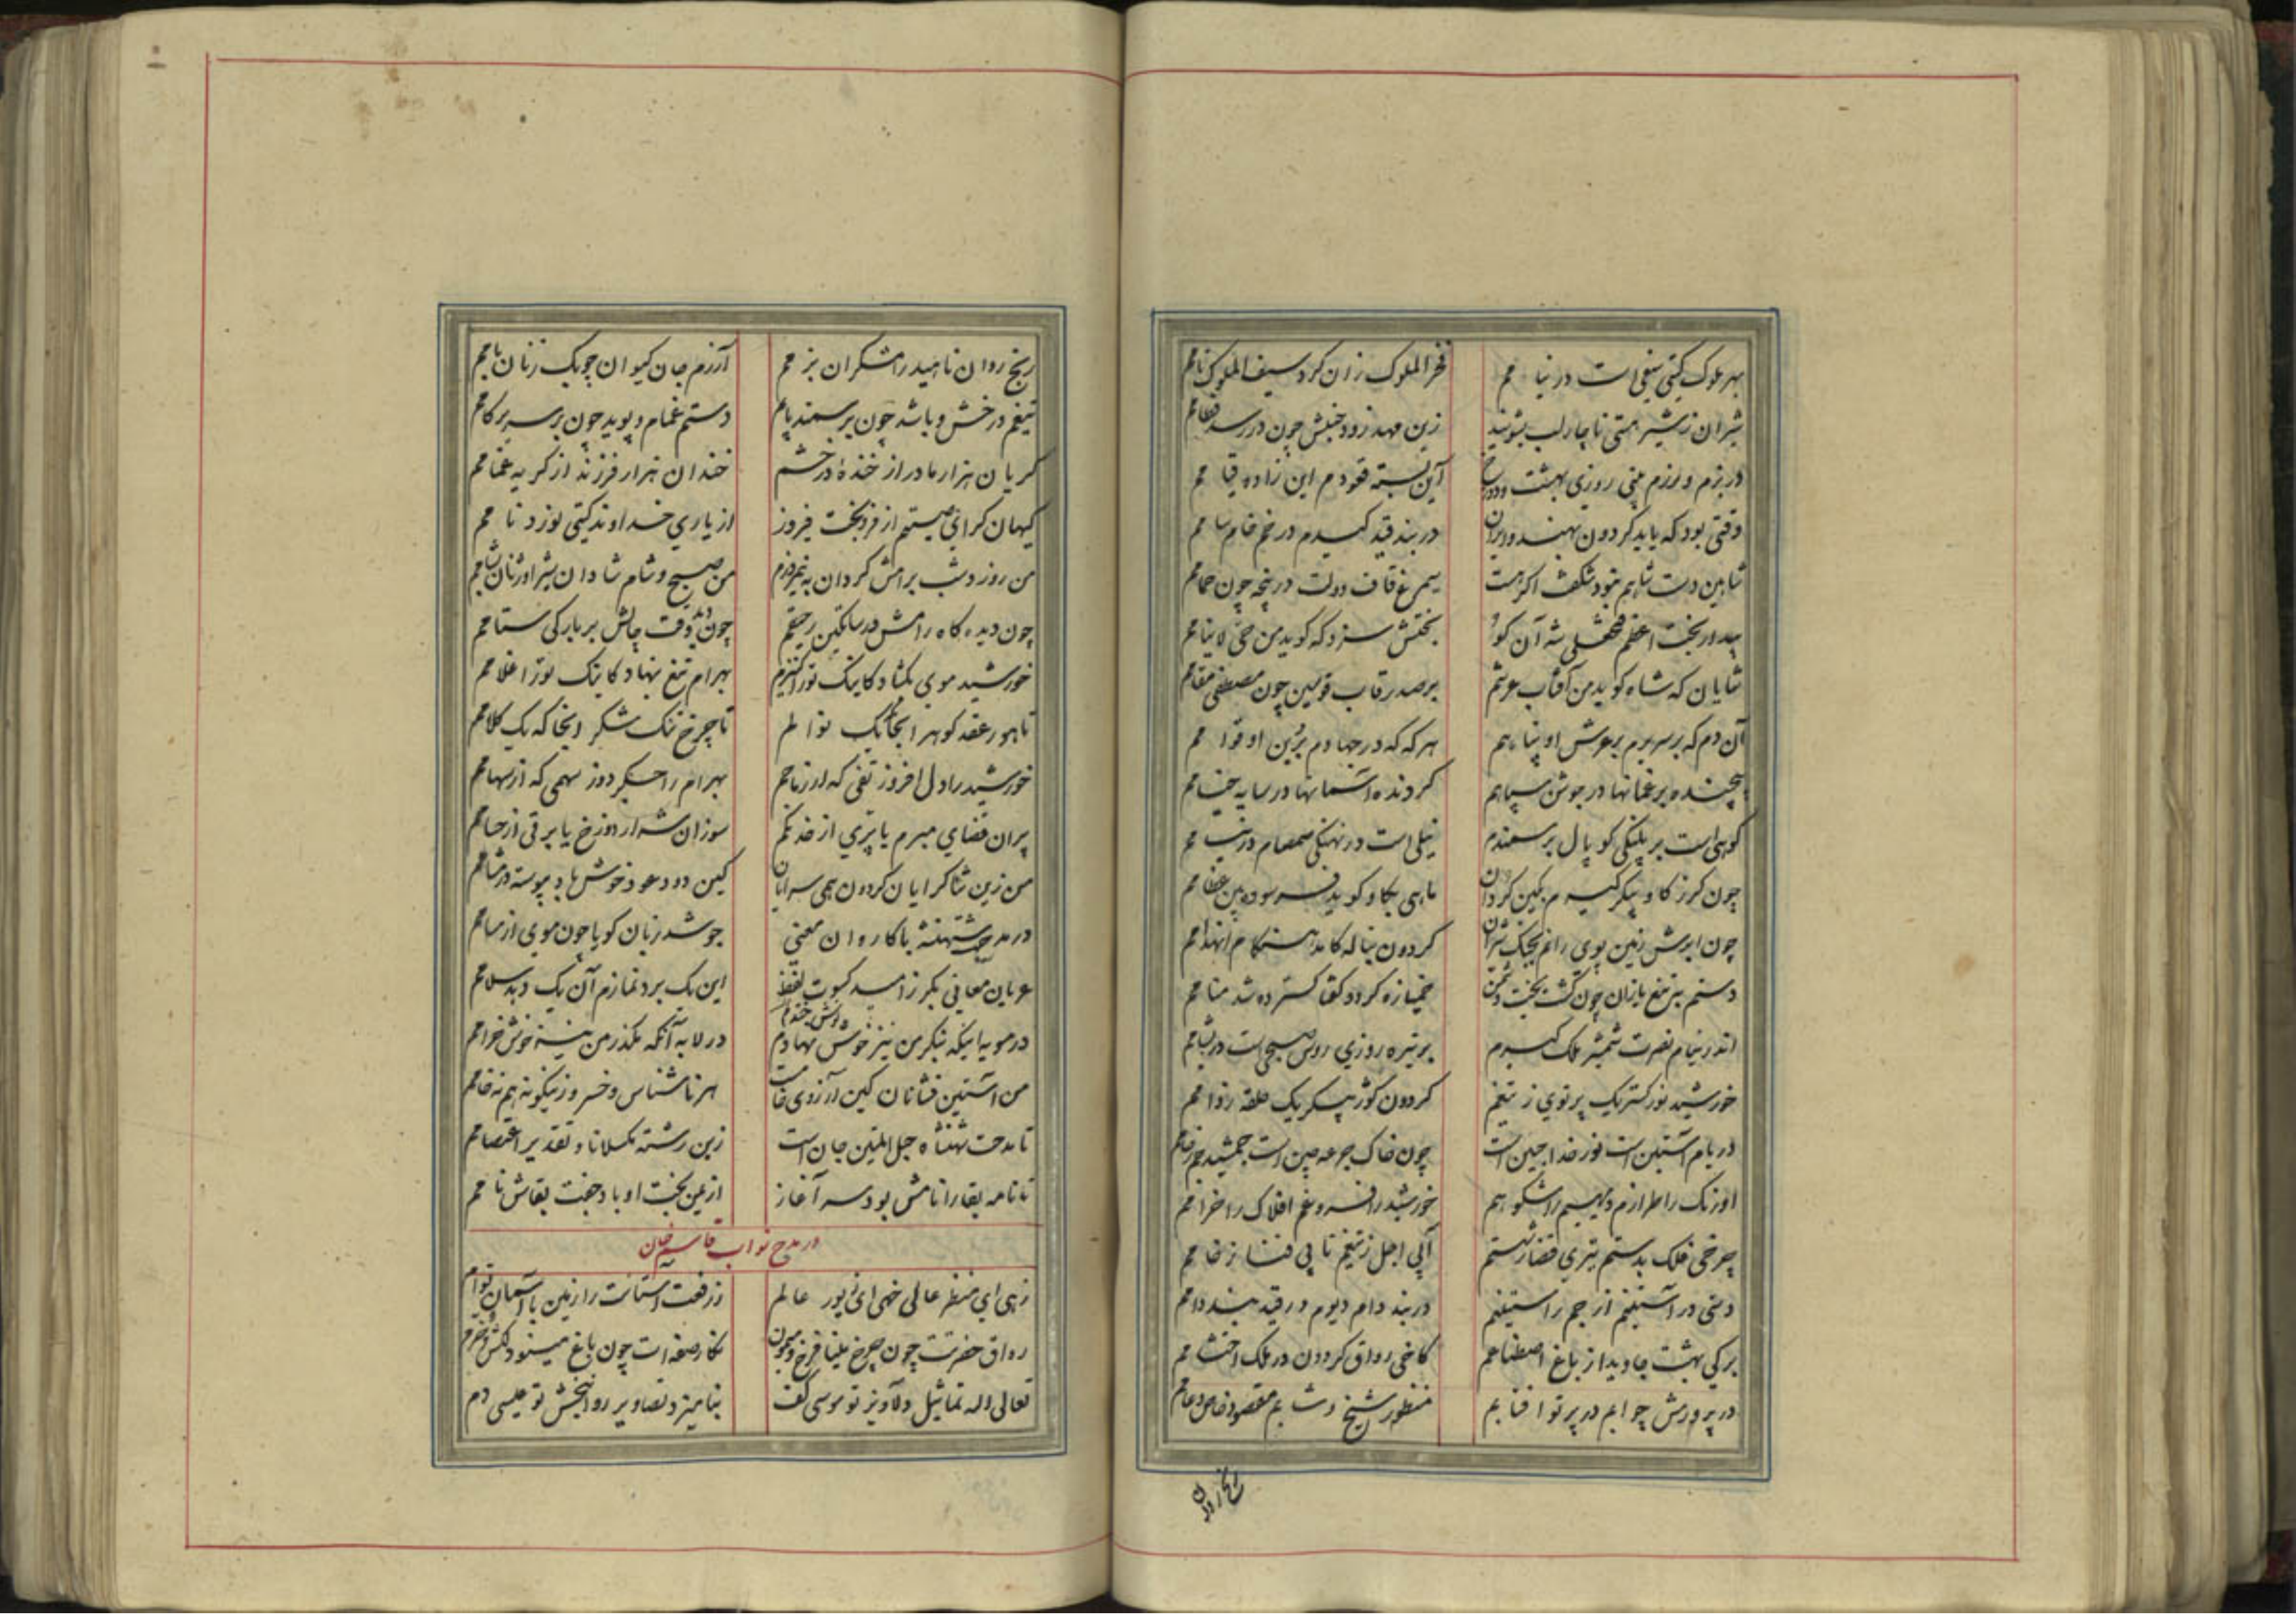 بهر ملوک گیتی تیغی است در نیامم فخر الملوک زان کرد سیف الملوک نامم
شیران ز شیر هستی ناچار لب بشویند زین مهد زود جنبش چون در رسد فطامم
در بزم و رزم بینی روزی بهشت و دوزخ آیین نسبته قعودم این زاده قیامم
وقتی بود که باید گردون بهند و ایران در بند قید در خم خام
شاهین دست شاهم نبود شگفت اگر هست سیمرغ قاف دولت در پنجه چون حمامم
بیدار بخت اعظم فتحعلی شه آن کو بختش سزد که گوید من حی لاینامم
شایان که شاه گوید من آفتاب عرشم بر صدر قاب قوسین چون مصطفی مقامم
آن دم که بر سریرم بر عرش او پناهم هر گه که در جهادم بر زین او قوامم
پیچنده بر عنانها در جوش سپاهم گردنده آسمانها در سایه خیامم
کوهی است بر پلنگی کوپال بر سمندم نیلی است در نهنگی صمصام در نیامم
چون گرز گاو پیکر گیرم بکین گردان ماهی بگاو گوید فرسوده بین عظامم
چون ابرش زمین پوی رانم بجنگ شیران گردون بناله کامد هنگام انهدامم
دستم بتیغ یازان چون گشت بخت دشمن خمیازه کرد و گفتا گسترده شد منامم
اندر نیام نصرت شمشیر ملک گیرم بر تیره روزی روس صبحی است در شامم
خورشید نور گستر یک پرتوی ز تیغم گردون کوژ پیکر یک حلقه زوامم
دریام آستین است نور خدا جبین است چون خاک جرعه چین است جمشید جم ز جامم
اورنگ را طرازم دیهیم را شکوهم خورشید را فروغم افلاک را خرامم
چرخی فلک بدستم تیری قضا ز شستم آبی اجل ز تیغم تابی فنا ز خامم
دستی در آستینم از جم راستینم در بند دام دیوم در قید بند دامم
برگی بهشت جاوید از باغ اصطناعم کاخی رواق گردون در ملک احتشامم
در پرورش چو ابم در پرتو آفتابم منظور شیخ و شابم مقصود خاص و عامم
رنج روان
رنج روان ناهید رامشگران بزمم آزرم جان کیوان چوبک زنان بامم
تیغم درخش و باشد چون بر سمند پایم دستم غمام و پوید چون بر سریر گامم
گریان هزار مادر از خنده درخشم خندان هزار فرزند از گریه غمامم
گیهان گرای صیتم از فر بخت فیروز از یاری خداوند گیتی نورد نامم
من روز و شب برامش گردان به نیمروزم من صبح و شام شادان شیر اوژنان بشامم
چون دیده گاه رامش در ساتگین رحیقم چون وقت چالش بر بارگی ستامم
خورشید موی بگشاد کاینک تو را کنیزم بهرام تیغ بنهاد کاینک تو را غلامم
ناهور عقد گوهر آنجا که یک نوالم تا چرخ تنگ شکر آنجا که یک کلامم
خورشید را دل افروز تفی که از زجاجم بهرام را جگر دوز سهمی که از سهامم
پران قضای مبرم یا تیری از خدنگم سوزان شرار دوزخ یا برقی از حسامم
من زین ثناگرایان گردون همی سرایان کین دود عود خوش باد پیوسته در مشامم
در مدحت شهنشه با کاروان معنی جوشد زبان گویا چون موی از مسامم
عریان معانی بکر ز امید کسوت لفظ این یک برد نمازم آن یک دهد سلامم
در مویه اینکه بنگر من نیز خوش نهادم در لابه آنکه مگذر من نیز خوش خرامم
دوش خندم
من آستین فشانان کین آرزوی خام است هر ناشناس و خسرو زینگونه هم نه خامم
تا مدحت شهنشاه حبل المتین جان است زین رشته مگسلاناد تقدیر اعتصامم
تا نامه بقا را نامش بود سر آغاز از یمن بخت او باد جفت بقاش نامم
در مدح نواب قاسم خان
زهی ای منظر عالی خهی ای زیور عالم ز رفعت آستانت را زمین با آسمان توام
رواق حضرتت چون چرخ مینا فرخ و میمون نگار صفه ات چون باغ مینو دلکش و خرم
تعالی الله تماثیل دلاویز تو موسی کف بنامیزد تصاویر روانبخش تو عیسی دم